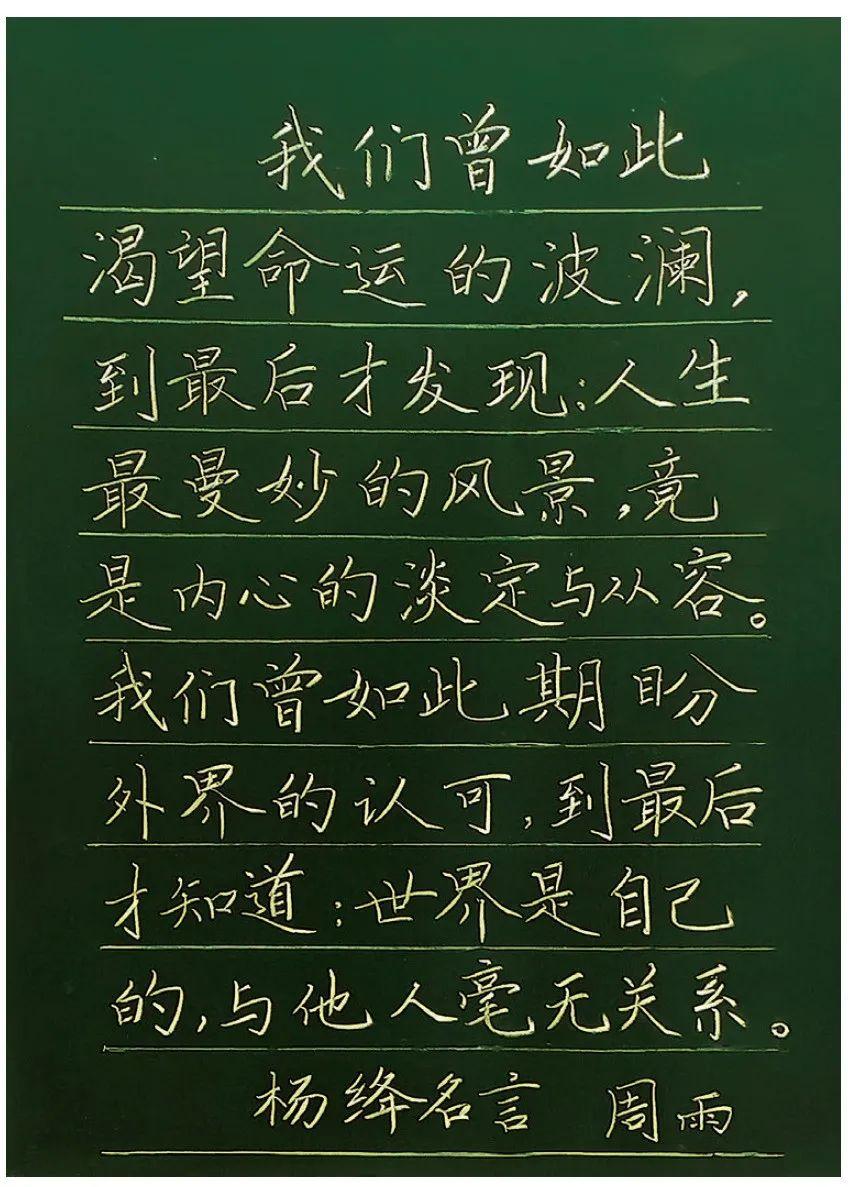 我们曾如此
渴望命运的波澜，
到最后才发现：人生
最曼妙的风景，竟
是内心的淡定与从容。
我们曾如此期盼
外界的认可，到最后
才知道：世界是自己
的，与他人毫无关系。
杨绛名言 周雨